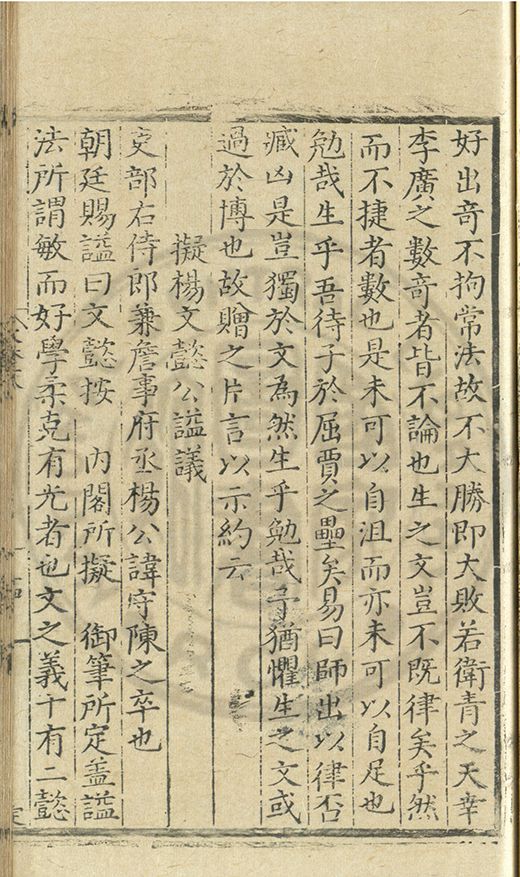 好出奇不拘常法故不大勝即大敗若衛青之天幸
李廣之數奇者皆不論也生之文豈不既律矣乎然
而不捷者數也是未可以自沮而亦未可以自足也
勉哉生乎吾待子於屈賈之壘矣易曰師出以律否
臧凶是豈獨於文為然生乎勉哉予猶懼生之文或
過於博也故贈之片言以示約云
擬楊文懿公謚議
吏部右侍郎兼詹事府丞楊公諱守陳之卒也
朝廷賜謚曰文懿按 內閣所擬 御筆所定盖謚
法所謂敏而好學柔克有光者也文之義十有二懿